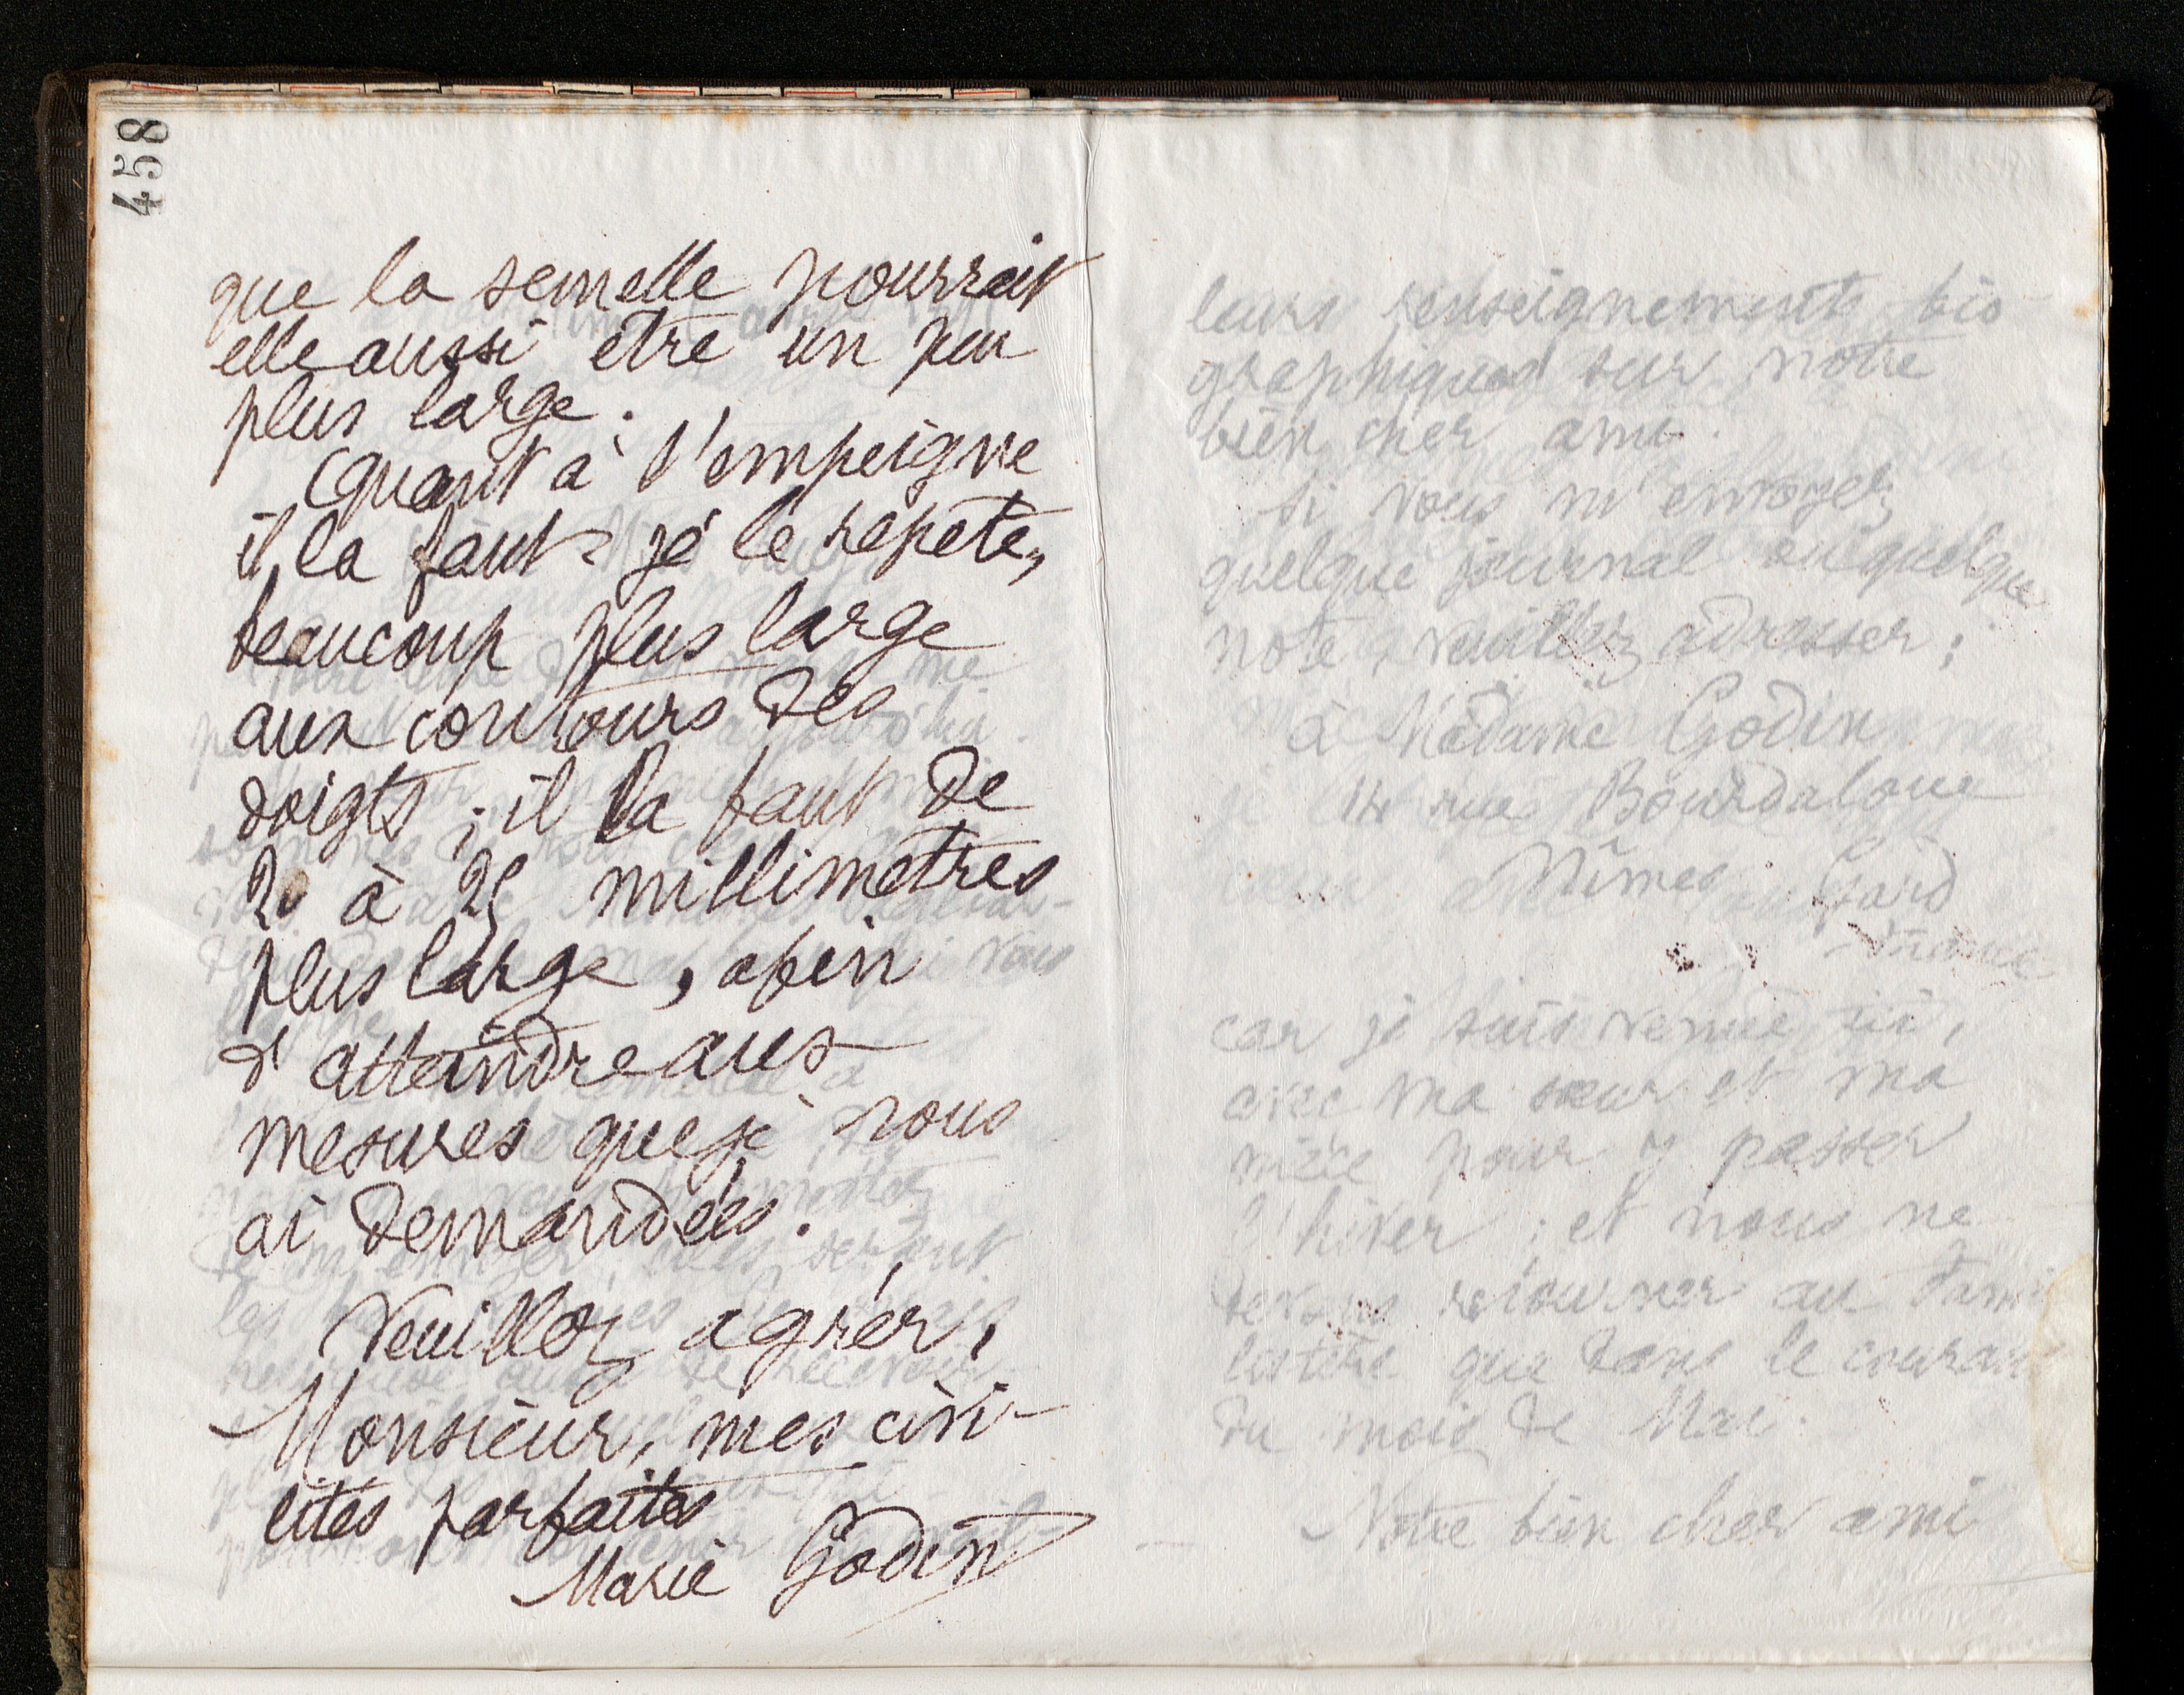 458
que la semelle pourrait
elle aussi être un peu
plus large.
Quant à l'empeigne
il la faut - je le répète,
beaucoup plus large
aux contours des
doigts ; il la faut de
20 à 25 millimètres
plus large, afin
d'atteindre aux
mesures que je vous
ai demandées.
Veuillez agréer,
Monsieur, mes civi-
lités parfaites
Marie Godin
leurs renseignements bio-
graphiques sur notre
bien cher ami.
Si vous m'envoyez
quelque journal ou quelque
note, veuillez adresser :
à Madame Godin
14 rue Bourdaloue
Nîmes Gard
France
car je suis venue ici,
avec ma sœur et ma
nièce pour y passer
l'hiver ; et nous ne
devons retourner au Fami
listère que dans le courant
du mois de Mai.
Notre bien cher ami